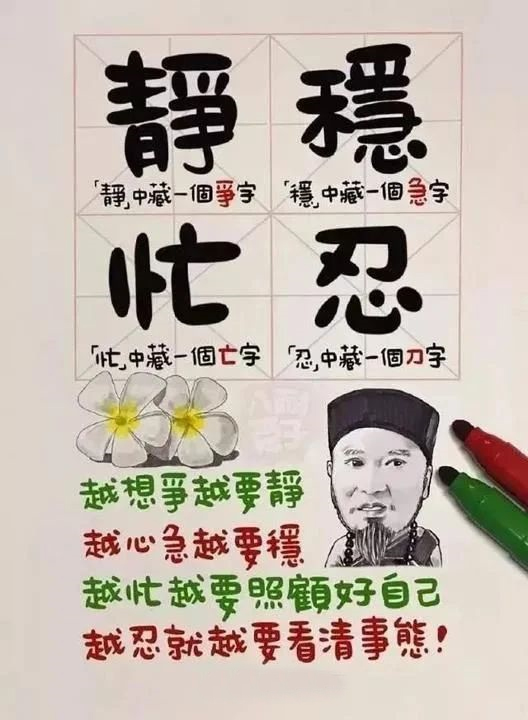 靜
穩
「靜」中藏一個爭字
「穩」中藏一個急字
忙
忍
「忙」中藏一個亡字
「忍」中藏一個刀字
越想爭越要靜
越心急越要穩
越忙越要照顧好自己
越忍就越要看清事態!